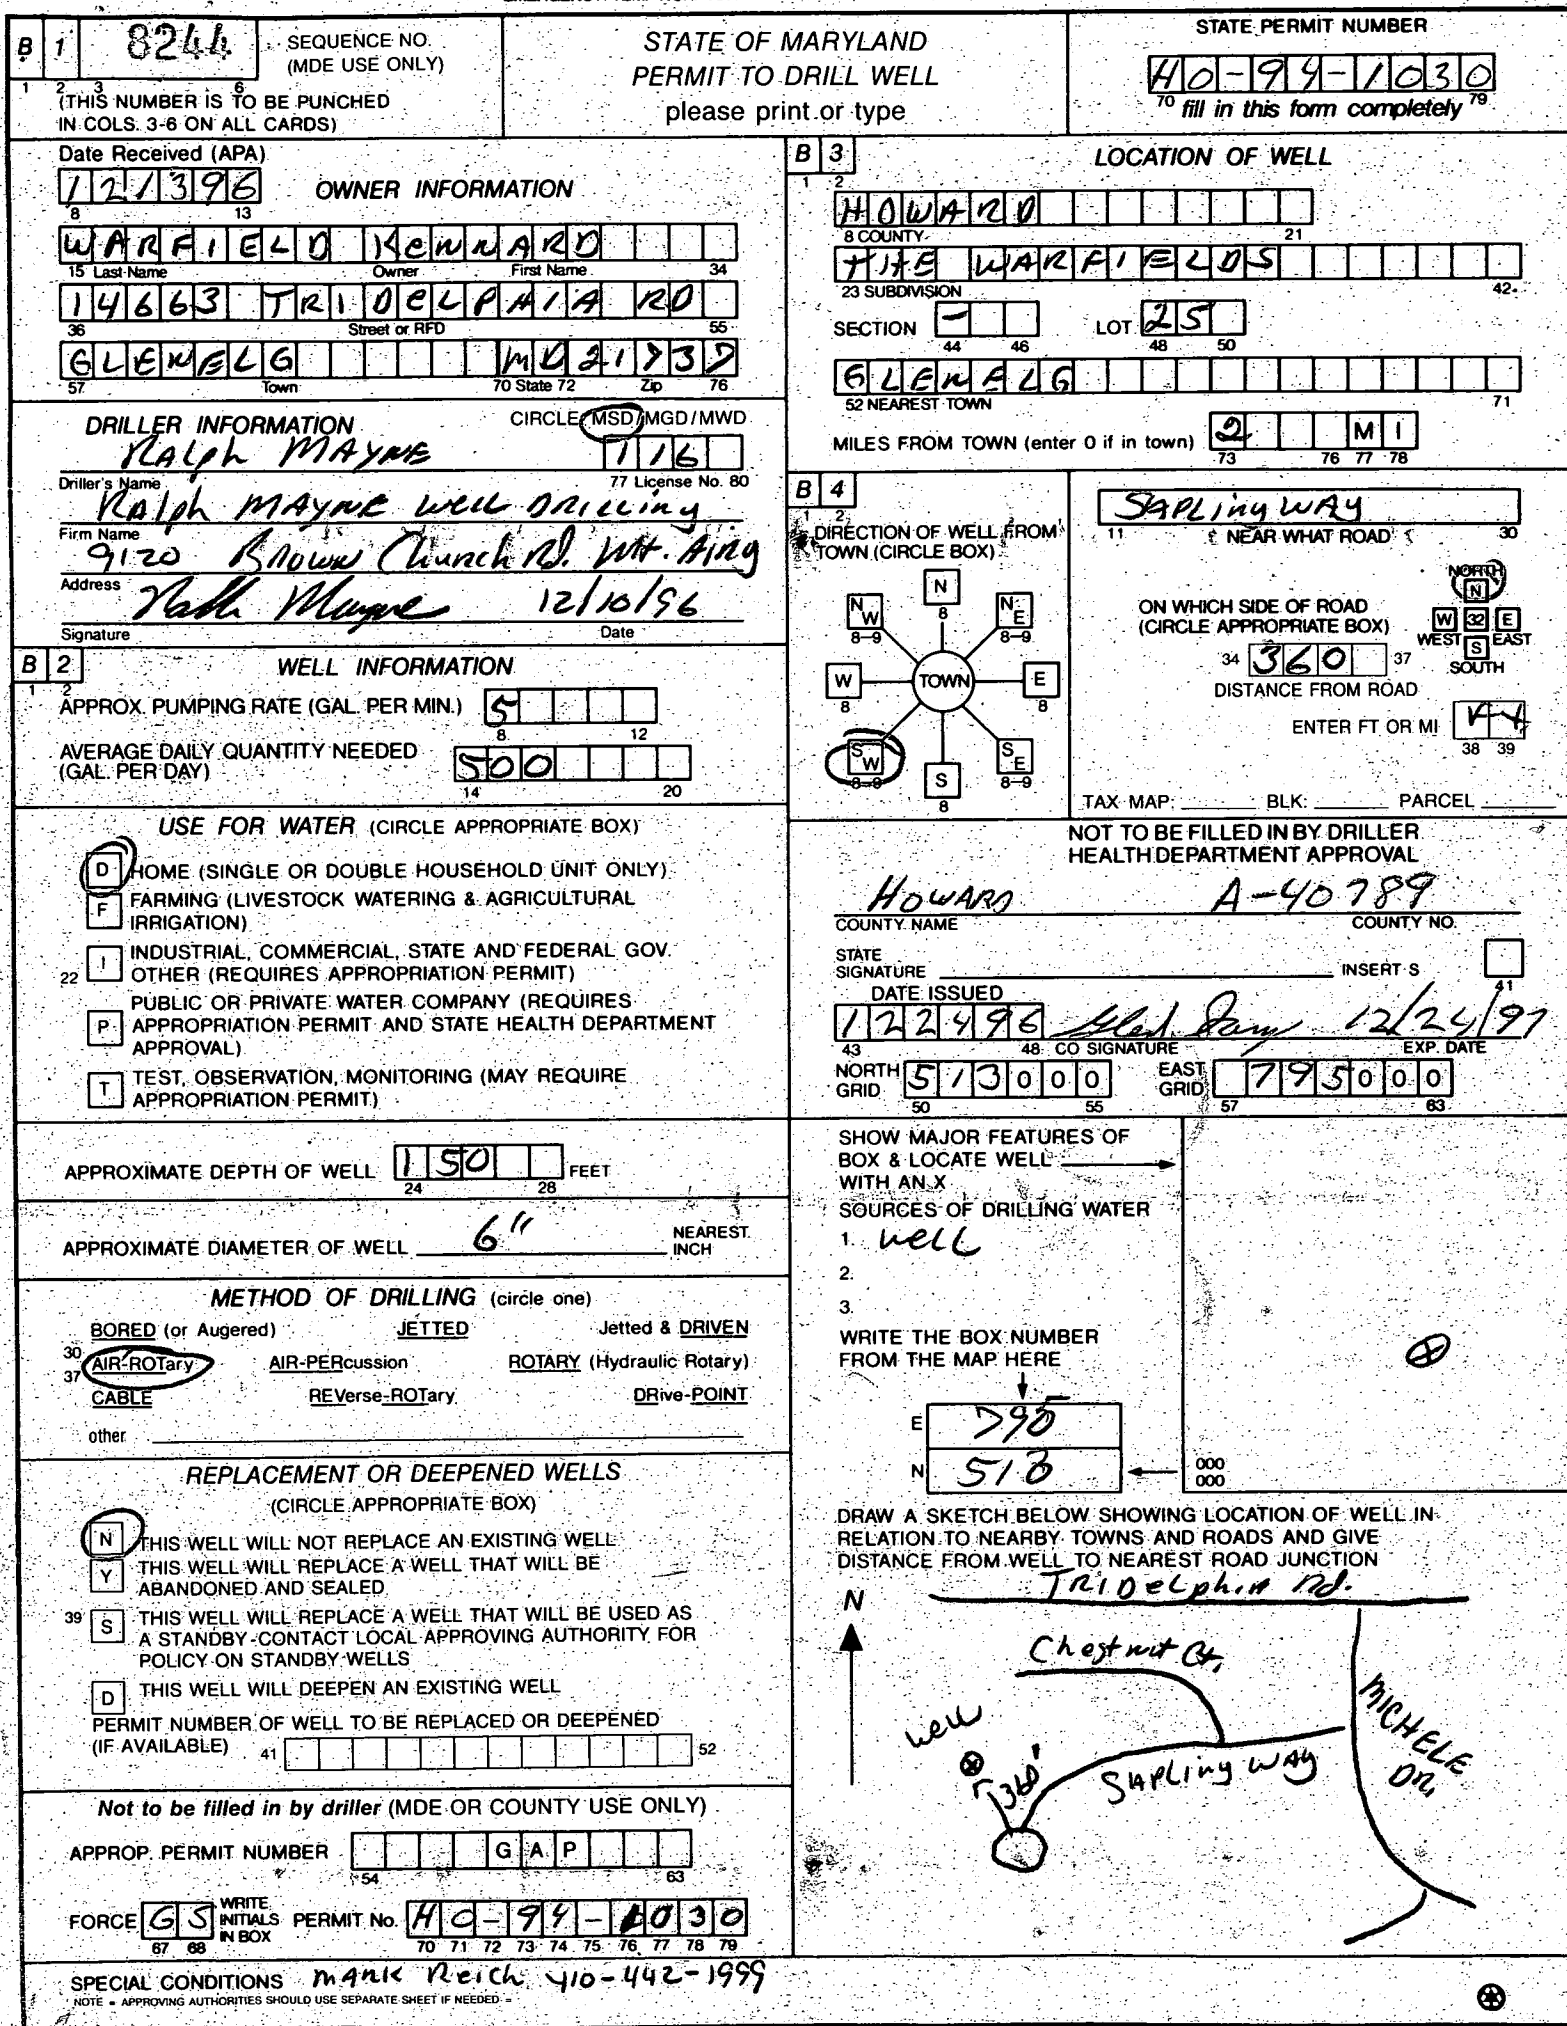 B 1 8244 SEQUENCE NO. (MDE USE ONLY)
1 2 3 6
(THIS NUMBER IS TO BE PUNCHED
IN COLS. 3-6 ON ALL CARDS)
STATE OF MARYLAND
PERMIT TO DRILL WELL
please print or type
STATE PERMIT NUMBER
HO-94-1030
70 fill in this form completely 79
Date Received (APA)
121396
8 13
OWNER INFORMATION
WARFIELD KENNARD
15 Last Name Owner First Name 34
14663 TRIDELPHIA RD
36 Street or RFD 55
GLENELG MD 21737
57 Town 70 State 72 Zip 76
DRILLER INFORMATION CIRCLE MSD/MGD/MWD
Ralph MAYNE 116
Driller's Name 77 License No. 80
Ralph MAYNE Well Drilling
Firm Name
9120 Brown Church Rd. Mt. Airy
Address
Ralph Mayne 12/10/96
Signature Date
B 2 WELL INFORMATION
1 2
APPROX. PUMPING RATE (GAL. PER MIN.) 5
8 12
AVERAGE DAILY QUANTITY NEEDED
(GAL. PER DAY) 500
14 20
USE FOR WATER (CIRCLE APPROPRIATE BOX)
D HOME (SINGLE OR DOUBLE HOUSEHOLD UNIT ONLY)
F FARMING (LIVESTOCK WATERING & AGRICULTURAL
IRRIGATION)
22 I INDUSTRIAL, COMMERCIAL, STATE AND FEDERAL GOV.
OTHER (REQUIRES APPROPRIATION PERMIT)
P PUBLIC OR PRIVATE WATER COMPANY (REQUIRES
APPROPRIATION PERMIT AND STATE HEALTH DEPARTMENT
APPROVAL)
T TEST, OBSERVATION, MONITORING (MAY REQUIRE
APPROPRIATION PERMIT)
APPROXIMATE DEPTH OF WELL 150 FEET
24 28
APPROXIMATE DIAMETER OF WELL 6" NEAREST
INCH
METHOD OF DRILLING (circle one)
BORED (or Augered) JETTED Jetted & DRIVEN
30 AIR-ROTary AIR-PERcussion ROTARY (Hydraulic Rotary)
37 CABLE REVerse-ROTary DRive-POINT
other
REPLACEMENT OR DEEPENED WELLS
(CIRCLE APPROPRIATE BOX)
N THIS WELL WILL NOT REPLACE AN EXISTING WELL
Y THIS WELL WILL REPLACE A WELL THAT WILL BE
ABANDONED AND SEALED
39 S THIS WELL WILL REPLACE A WELL THAT WILL BE USED AS
A STANDBY-CONTACT LOCAL APPROVING AUTHORITY FOR
POLICY ON STANDBY WELLS
D THIS WELL WILL DEEPEN AN EXISTING WELL
PERMIT NUMBER OF WELL TO BE REPLACED OR DEEPENED
(IF AVAILABLE) 41 52
Not to be filled in by driller (MDE OR COUNTY USE ONLY)
APPROP. PERMIT NUMBER GAP
54 63
FORCE GS WRITE INITIALS IN BOX PERMIT No. HO-94-1030
67 68 70 71 72 73 74 75 76 77 78 79
B 3 LOCATION OF WELL
1 2
HOWARD
8 COUNTY 21
THE WARFIELDS
23 SUBDIVISION 42
SECTION - LOT 25
44 46 48 50
GLENELG
52 NEAREST TOWN 71
MILES FROM TOWN (enter 0 if in town) 2 MI
73 76 77 78
B 4
1 2
DIRECTION OF WELL FROM
TOWN (CIRCLE BOX)
N
8
NW NE
8-9 8-9
W TOWN E
8 8
SW SE
8-9 8-9
S
8
SAPLing WAY
11 NEAR WHAT ROAD 30
ON WHICH SIDE OF ROAD
(CIRCLE APPROPRIATE BOX)
NORTH
N
W 32 E
WEST EAST
S
SOUTH
34 360 37
DISTANCE FROM ROAD
ENTER FT OR MI
38 39
TAX MAP: BLK: PARCEL
NOT TO BE FILLED IN BY DRILLER
HEALTH DEPARTMENT APPROVAL
HOWARD A-40789
COUNTY NAME COUNTY NO.
STATE
SIGNATURE INSERT S
41
DATE ISSUED
122496 12/24/97
43 48 CO SIGNATURE EXP. DATE
NORTH GRID 513000 EAST GRID 795000
50 55 57 63
SHOW MAJOR FEATURES OF
BOX & LOCATE WELL
WITH AN X
SOURCES OF DRILLING WATER
1. well
2.
3.
WRITE THE BOX NUMBER
FROM THE MAP HERE
E 795
N 513
000
000
DRAW A SKETCH BELOW SHOWING LOCATION OF WELL IN
RELATION TO NEARBY TOWNS AND ROADS AND GIVE
DISTANCE FROM WELL TO NEAREST ROAD JUNCTION
TRIDelphia Rd.
N
Chestnut Ct.
well
360'
SAPLing WAY
MICHELE
DR.
SPECIAL CONDITIONS MARK Reich 410-442-1999
NOTE = APPROVING AUTHORITIES SHOULD USE SEPARATE SHEET IF NEEDED =